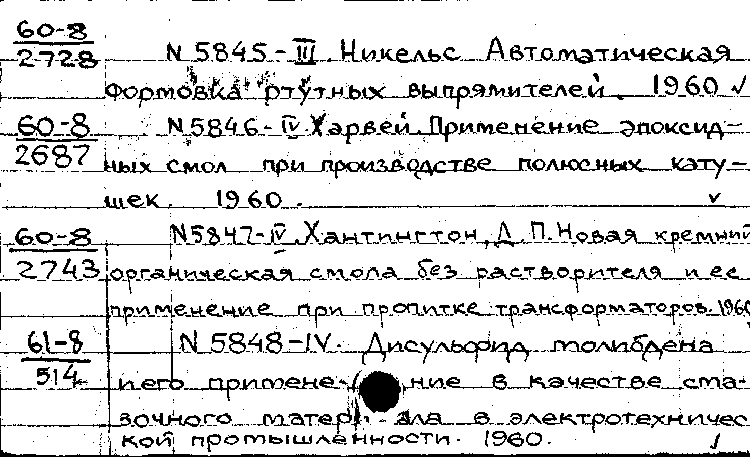 60-8
2728 N 5845-III. Никельс Автоматическая
формовка ртутных выпрямителей. 1960 ✓
60-8 N 5846-IV Харвей. Применение эпоксид-
2687 ных смол при производстве полюсных кату-
шек. 1960. ✓
60-8 N 5847-IV. Хантингтон, Д. П. Новая кремний
2743 органическая смола без растворителя и ее
применение при пропитке трансформаторов. 1960
61-8 N 5848-IV. Дисульфид молибдена
514 и его примене- ние в качестве сма-
зочного матери- ала в электротехничес
кой промышленности. 1960. ✓